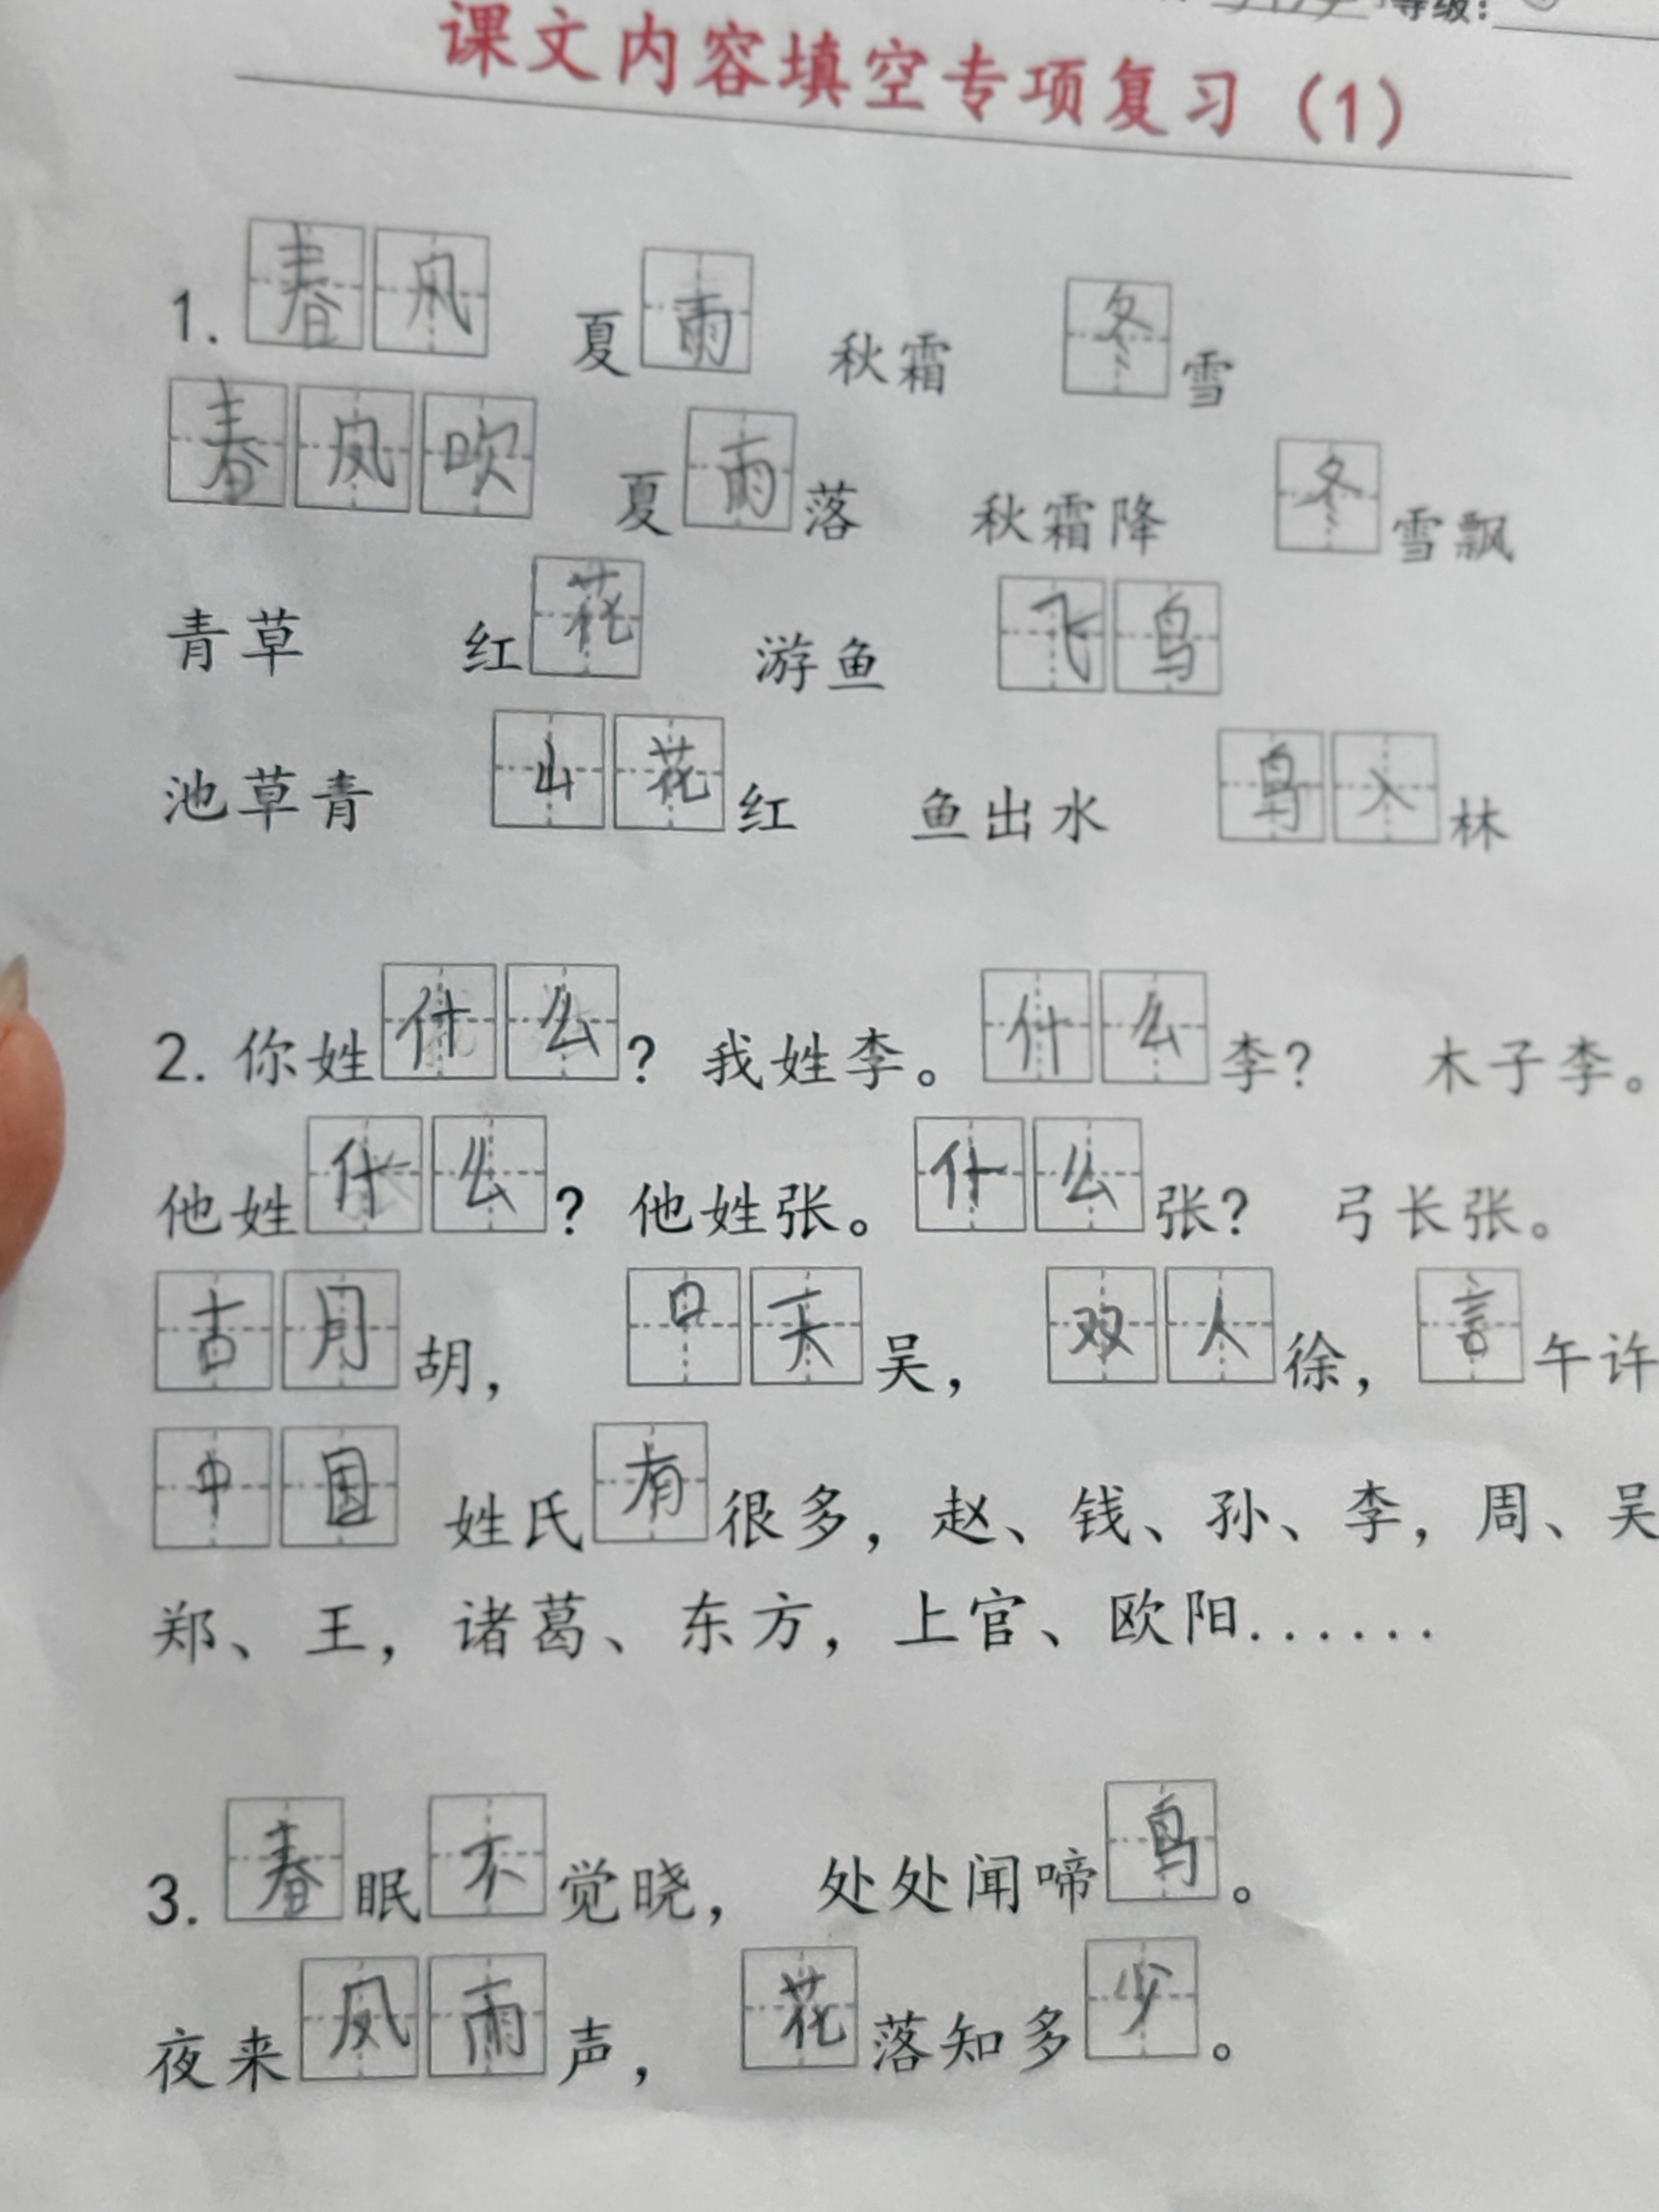 等级：
课文内容填空专项复习（1）
1. 春风 夏雨 秋霜 冬雪
春风吹 夏雨落 秋霜降 冬雪飘
青草 红花 游鱼 飞鸟
池草青 山花红 鱼出水 鸟入林
2. 你姓什么？我姓李。什么李？ 木子李。
他姓什么？他姓张。什么张？ 弓长张。
古月胡， 口天吴， 双人徐，言午许
中国 姓氏有很多，赵、钱、孙、李，周、吴
郑、王，诸葛、东方，上官、欧阳......
3. 春眠不觉晓， 处处闻啼鸟。
夜来风雨声， 花落知多少。